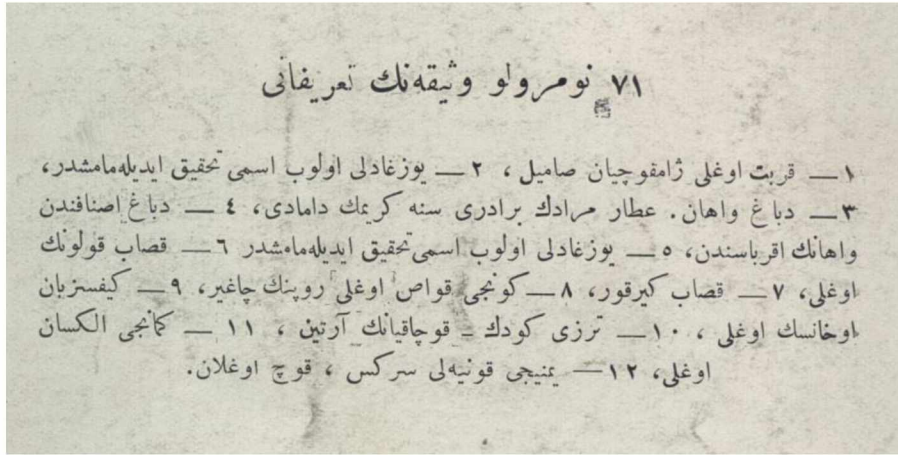 ٧١ نومرولو وثيقه‌نك تعريفاتى
١ — قربت اوغلى ژامفوچيان صاميل ، ٢ — يوزغادلى اولوب اسمى تحقيق ايديله‌مامشدر،
٣ — دباغ واهان. عطار مرادك برادرى سنه كريمك دامادى، ٤ — دباغ اصنافندن
واهانك اقرباسندن، ٥ — يوزغادلى اولوب اسمى تحقيق ايديله‌مامشدر ٦ — قصاب قولونك
اوغلى، ٧ — قصاب كيرقور، ٨ — كونجى قواص اوغلى روپنك چاغير، ٩ — كيفسزبان
اوخانسك اوغلى ، ١٠ — ترزى كودك ـ قوچاقيانك آرتين ، ١١ — كمانجى الكسان
اوغلى، ١٢ — يمنيجى قونيه‌لى سركس ، قوچ اوغلان.